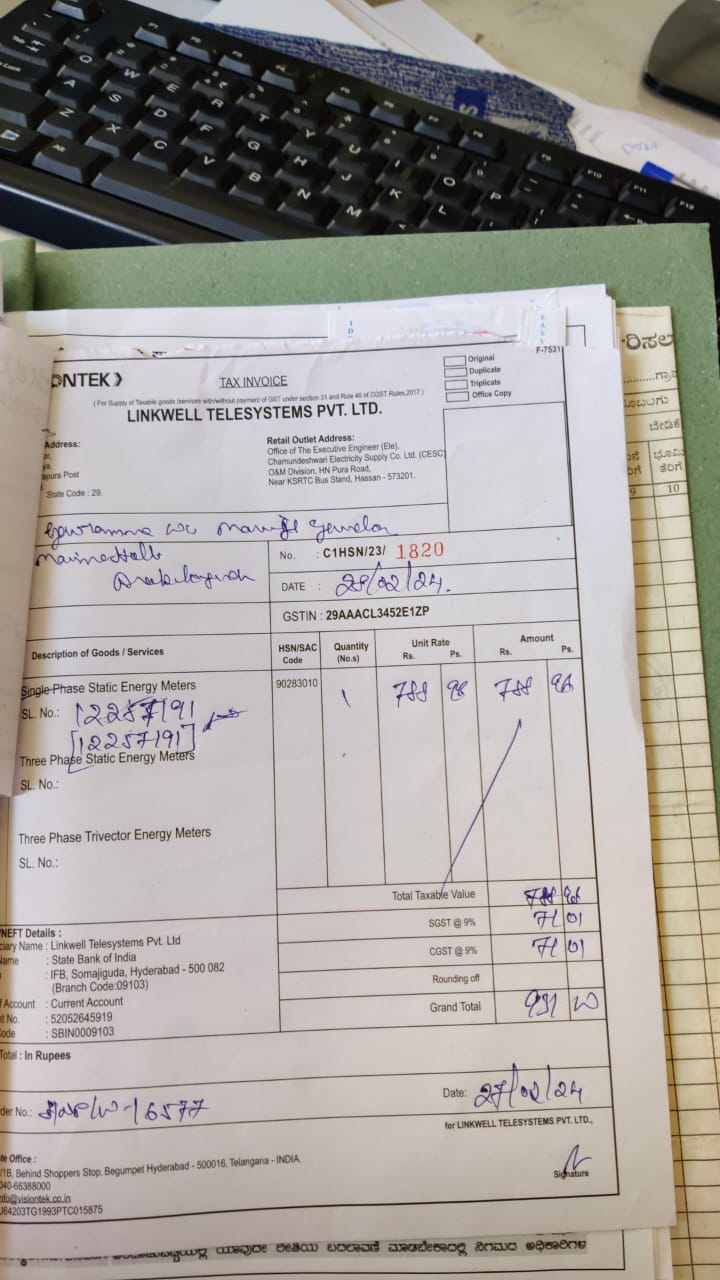 F-7531
ONTEK
TAX INVOICE
Original
Duplicate
Triplicate
Office Copy
( For Supply of Taxable goods /services with/without payment of GST under section 31 and Rule 46 of CGST Rules,2017 )
LINKWELL TELESYSTEMS PVT. LTD.
Address:
or,
ya,
apura Post
State Code : 29.
Retail Outlet Address:
Office of The Executive Engineer (Ele),
Chamundeshwari Electricity Supply Co. Ltd. (CESC)
O&M Division, HN Pura Road,
Near KSRTC Bus Stand, Hassan - 573201.
No. : C1HSN/23/ 1820
DATE : 28/02/24.
GSTIN : 29AAACL3452E1ZP
Description of Goods / Services
HSN/SAC Code
Quantity (No.s)
Unit Rate Rs. Ps.
Amount Rs. Ps.
Single Phase Static Energy Meters 90283010 1 788 98 788 98
SL. No.: 12257191
[12257191]
Three Phase Static Energy Meters
SL. No.:
Three Phase Trivector Energy Meters
SL. No.:
Total Taxable Value 788 98
SGST @ 9% 71 01
CGST @ 9% 71 01
Rounding off
Grand Total 931
/NEFT Details :
ciary Name : Linkwell Telesystems Pvt. Ltd
Name : State Bank of India
: IFB, Somajiguda, Hyderabad - 500 082
(Branch Code:09103)
f Account : Current Account
t No. : 52052645919
ode : SBIN0009103
Total : In Rupees
der No.: 16577
Date: 27/02/24
for LINKWELL TELESYSTEMS PVT. LTD.,
Signature
te Office :
/1B, Behind Shoppers Stop, Begumpet Hyderabad - 500016, Telangana - INDIA.
040-66388000
nfo@visiontek.co.in
U64203TG1993PTC015875